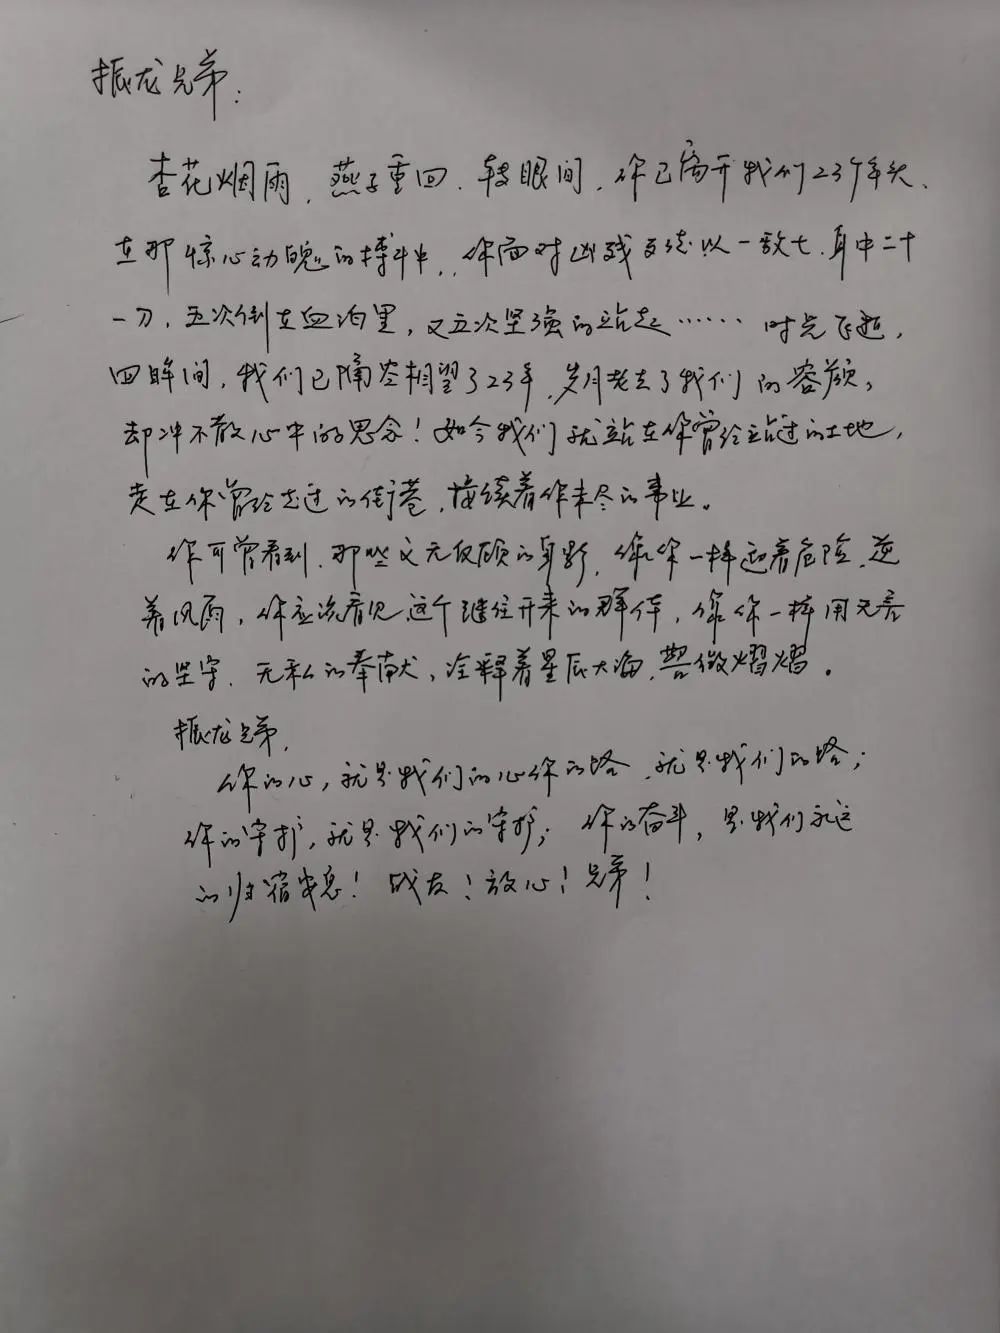 振龙兄弟：
杏花烟雨，燕子重回，转眼间，你已离开我们23个年头、
在那惊心动魄的搏斗中，你面对凶残歹徒以一敌七，身中二十
一刀，五次倒在血泊里，又五次坚强的站起……时光飞逝，
回眸间，我们已隔空相望了23年，岁月老去了我们的容颜，
却冲不散心中的思念！如今我们就站在你曾经站过的土地，
走在你曾经走过的街巷，接续着你未尽的事业。
你可曾看到，那些义无反顾的身影，像你一样迎着危险、逆
着风雨，你应该看见，这个继往开来的群体，像你一样用无言
的坚守、无私的奉献，诠释着星辰大海，警徽熠熠。
振龙兄弟，
你的心，就是我们的心你的塔，就是我们的塔；
你的守护，就是我们的守护；你的奋斗，是我们永远
的归宿！战友！放心！兄弟！